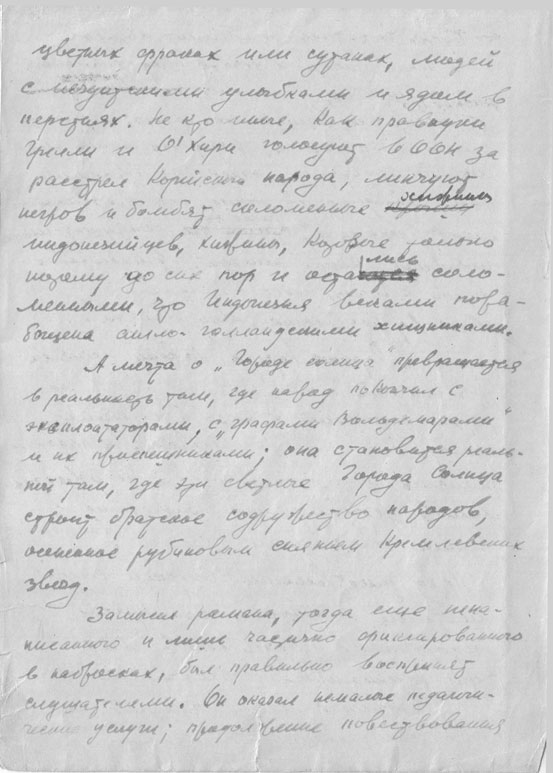 цветных фраках или сутанах, людей
с иезуитскими улыбками и ядом в
перстнях. Не кто иные, как правнуки
и О'Хири голосуют в ООН за
расстрел Корейского народа, линчуют
негров и бомбят соломенные хижины
индонезийцев, хижины, которые только
потому до сих пор и остались соло-
менными, что Индонезия веками пора-
бощена англо-голландскими хищниками.
А мечта о „Городе солнца" превращается
в реальность там, где народ покончил с
эксплоататорами, с „графами Вольдемарами"
и их приспешниками; она становится реаль-
ной там, где эти светлые Города Солнца
строит братское содружество народов,
осененное рубиновым сияньем Кремлевских
звезд.
Замысел романа, тогда еще нена-
писанного и лишь частично фиксированного
в набросках, был правильно воспринят
слушателями. Он оказал немалые педагоги-
ческие услуги; продолжение повествования